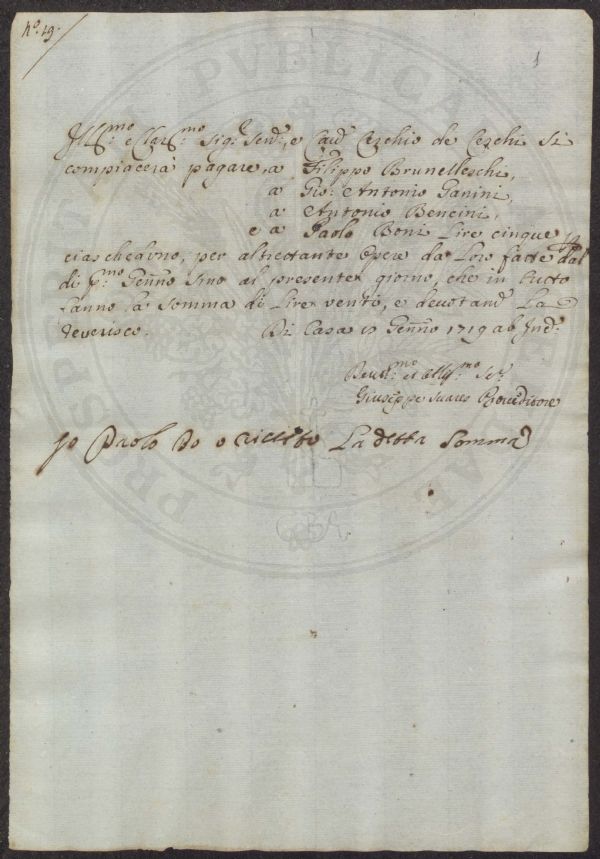 N.º 19.
1
Ill.mo e Clar.mo Sig.e Sen.e, e Cav.e Cerchio de Cerchi si
compiacerà pagare, a Filippo Brunelleschi,
a Gio: Antonio Ganini,
a Antonio Bencini,
e a Paolo Boni Lire cinque
ciascheduno, per altrettante Opere da Loro fatte dal
di p.mo Genn.o sino al presente giorno, che in tutto
fanno la somma di Lire venti, e devotam.e La
reverisco. Di Casa 19 Genn.o 1719 ab Ind.e
Devot.mo et Obl.mo Se.r
Giuseppe Suares Proveditore
Jo Paolo Bo o riceuto La detta Somma
PROSPERITATI PVBLICAE